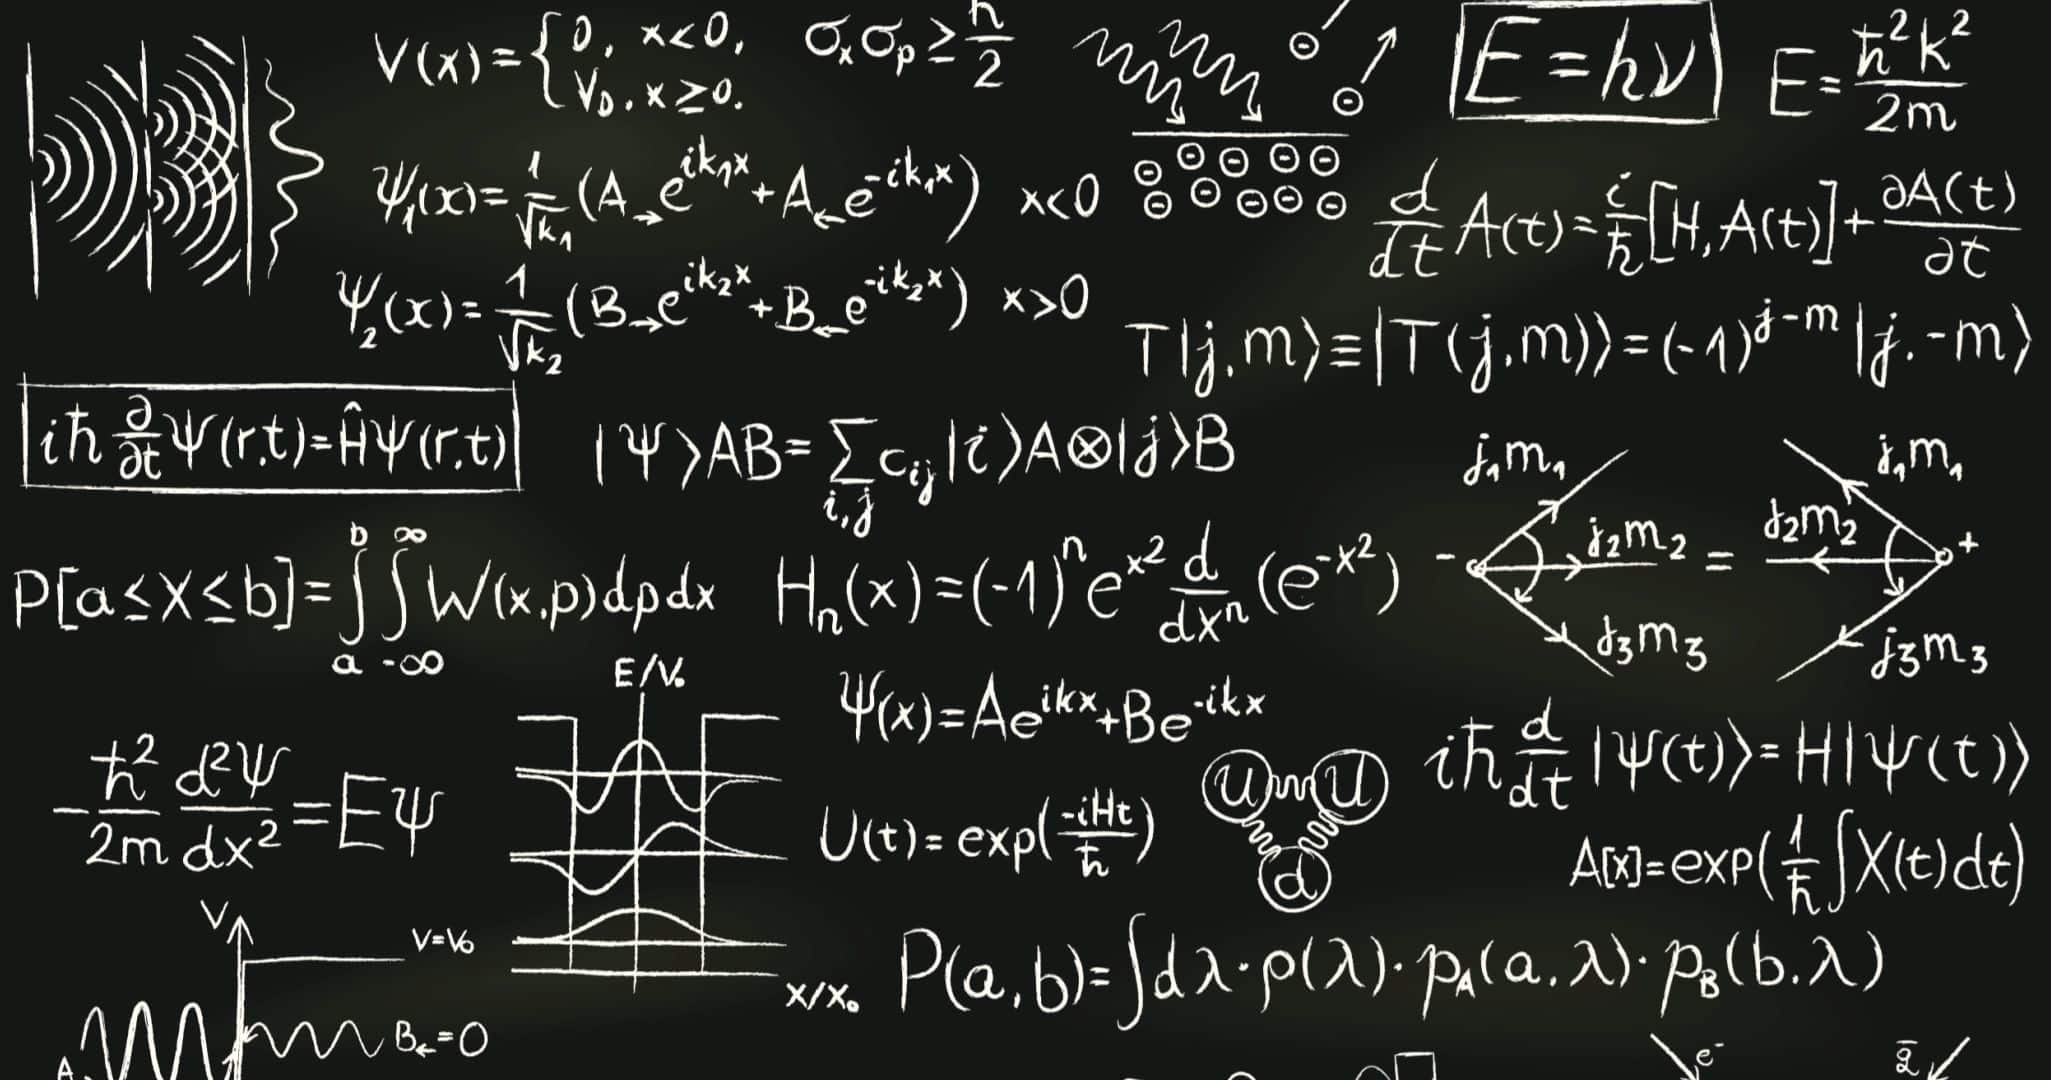 V(x)={0, x<0, V₀, x≥0.
σₓσₚ≥ħ/2
⊖
⊖
⊖ ⊖ ⊖ ⊖ ⊖
⊖ ⊖ ⊖ ⊖ ⊖ ⊖
E=hν
E=ħ²k²/2m
Ψ₁(x)=1/√k₁(A→e^{ik₁x}+A←e^{-ik₁x}) x<0
d/dt A(t)=i/ħ[H,A(t)]+∂A(t)/∂t
Ψ₂(x)=1/√k₂(B→e^{ik₂x}+B←e^{-ik₂x}) x>0
T|j,m⟩≡|T(j,m)⟩=(-1)^{j-m}|j,-m⟩
iħ ∂/∂t Ψ(r,t)=ĤΨ(r,t)
|Ψ⟩AB=∑_{i,j}c_{ij}|i⟩A⊗|j⟩B
j₁m₁
j₂m₂
j₃m₃
- = +
j₁m₁
j₂m₂
j₃m₃
P[a≤X≤b]=∫_a^b∫_{-∞}^{∞}W(x,p)dpdx
Hₙ(x)=(-1)ⁿe^{x2} d/dxⁿ(e^{-x2})
E/V₀
X/X₀
Ψ(x)=Ae^{ikx}+Be^{-ikx}
iħ d/dt|Ψ(t)⟩=H|Ψ(t)⟩
-ħ²/2m d²Ψ/dx²=EΨ
U(t)=exp(-iHt/ħ)
u u
d
A[x]=exp(1/ħ∫X(t)dt)
V
V=V₀
B←=0
A
P(a,b)=∫dλ·ρ(λ)·p_A(a,λ)·p_B(b,λ)
e⁻
q̄